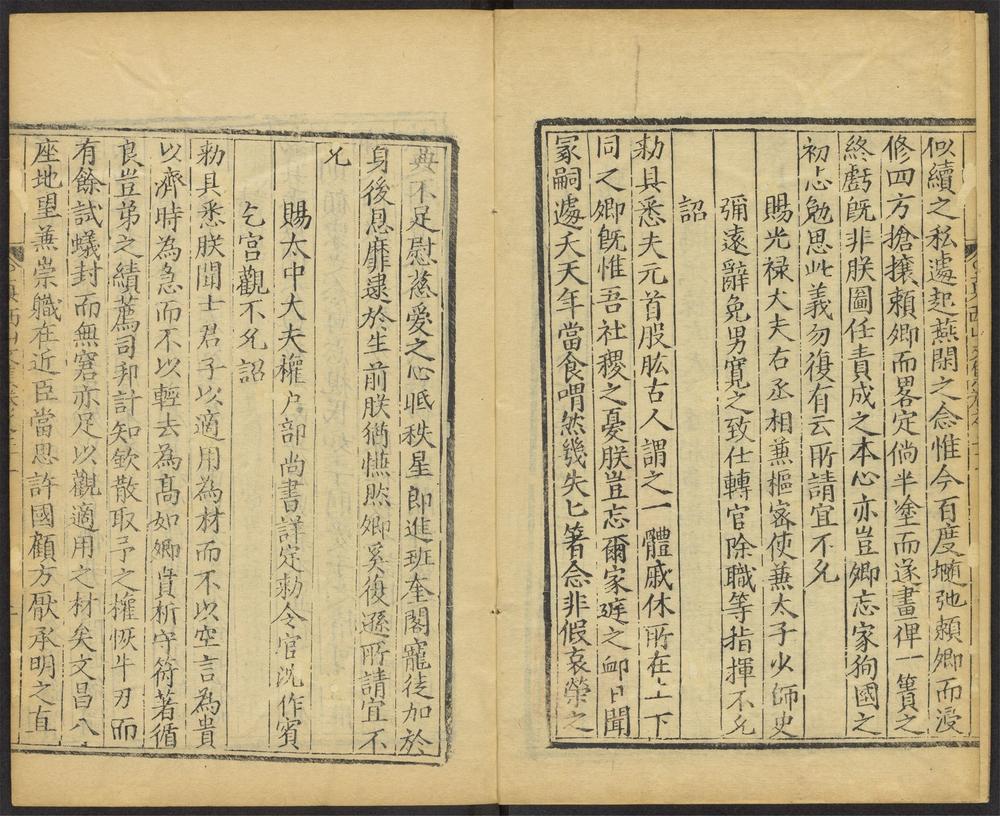 似續之私遽起燕閒之念惟今百度墮弛賴卿而浸
修四方搶攘賴卿而畧定倘半塗而遂畫俾一簣之
終虧既非朕圖任責成之本心亦豈卿忘家狥國之
初志勉思此義勿復有云所請宜不允
賜光禄大夫右丞相兼樞宻使兼太子少師史
彌遠辭免男寛之致仕轉官除職等指揮不允
詔
勑具悉夫元首股肱古人謂之一體戚休所在上下
同之卿既惟吾社稷之憂朕豈忘爾家庭之卹日聞
冡嗣遽夭天年當食喟然幾失匕箸念非假哀榮之
典不足慰慈愛之心㫝秩星郎進班奎閣寵徒加於
身後恩靡逮於生前朕猶憮然卿奚復遜所請宜不
允
賜太中大夫權户部尚書詳定勑令官沈作賓
乞宮觀不允詔
勑具悉朕聞士君子以適用為材而不以空言為貴
以濟時為急而不以輕去為髙如卿賁析守符著循
良豈弟之績薦司邦計知斂散取予之權恢牛刃而
有餘試蟻封而無窘亦足以觀適用之材矣文昌八
座地望兼崇職在近臣當思許國顧方厭承明之直